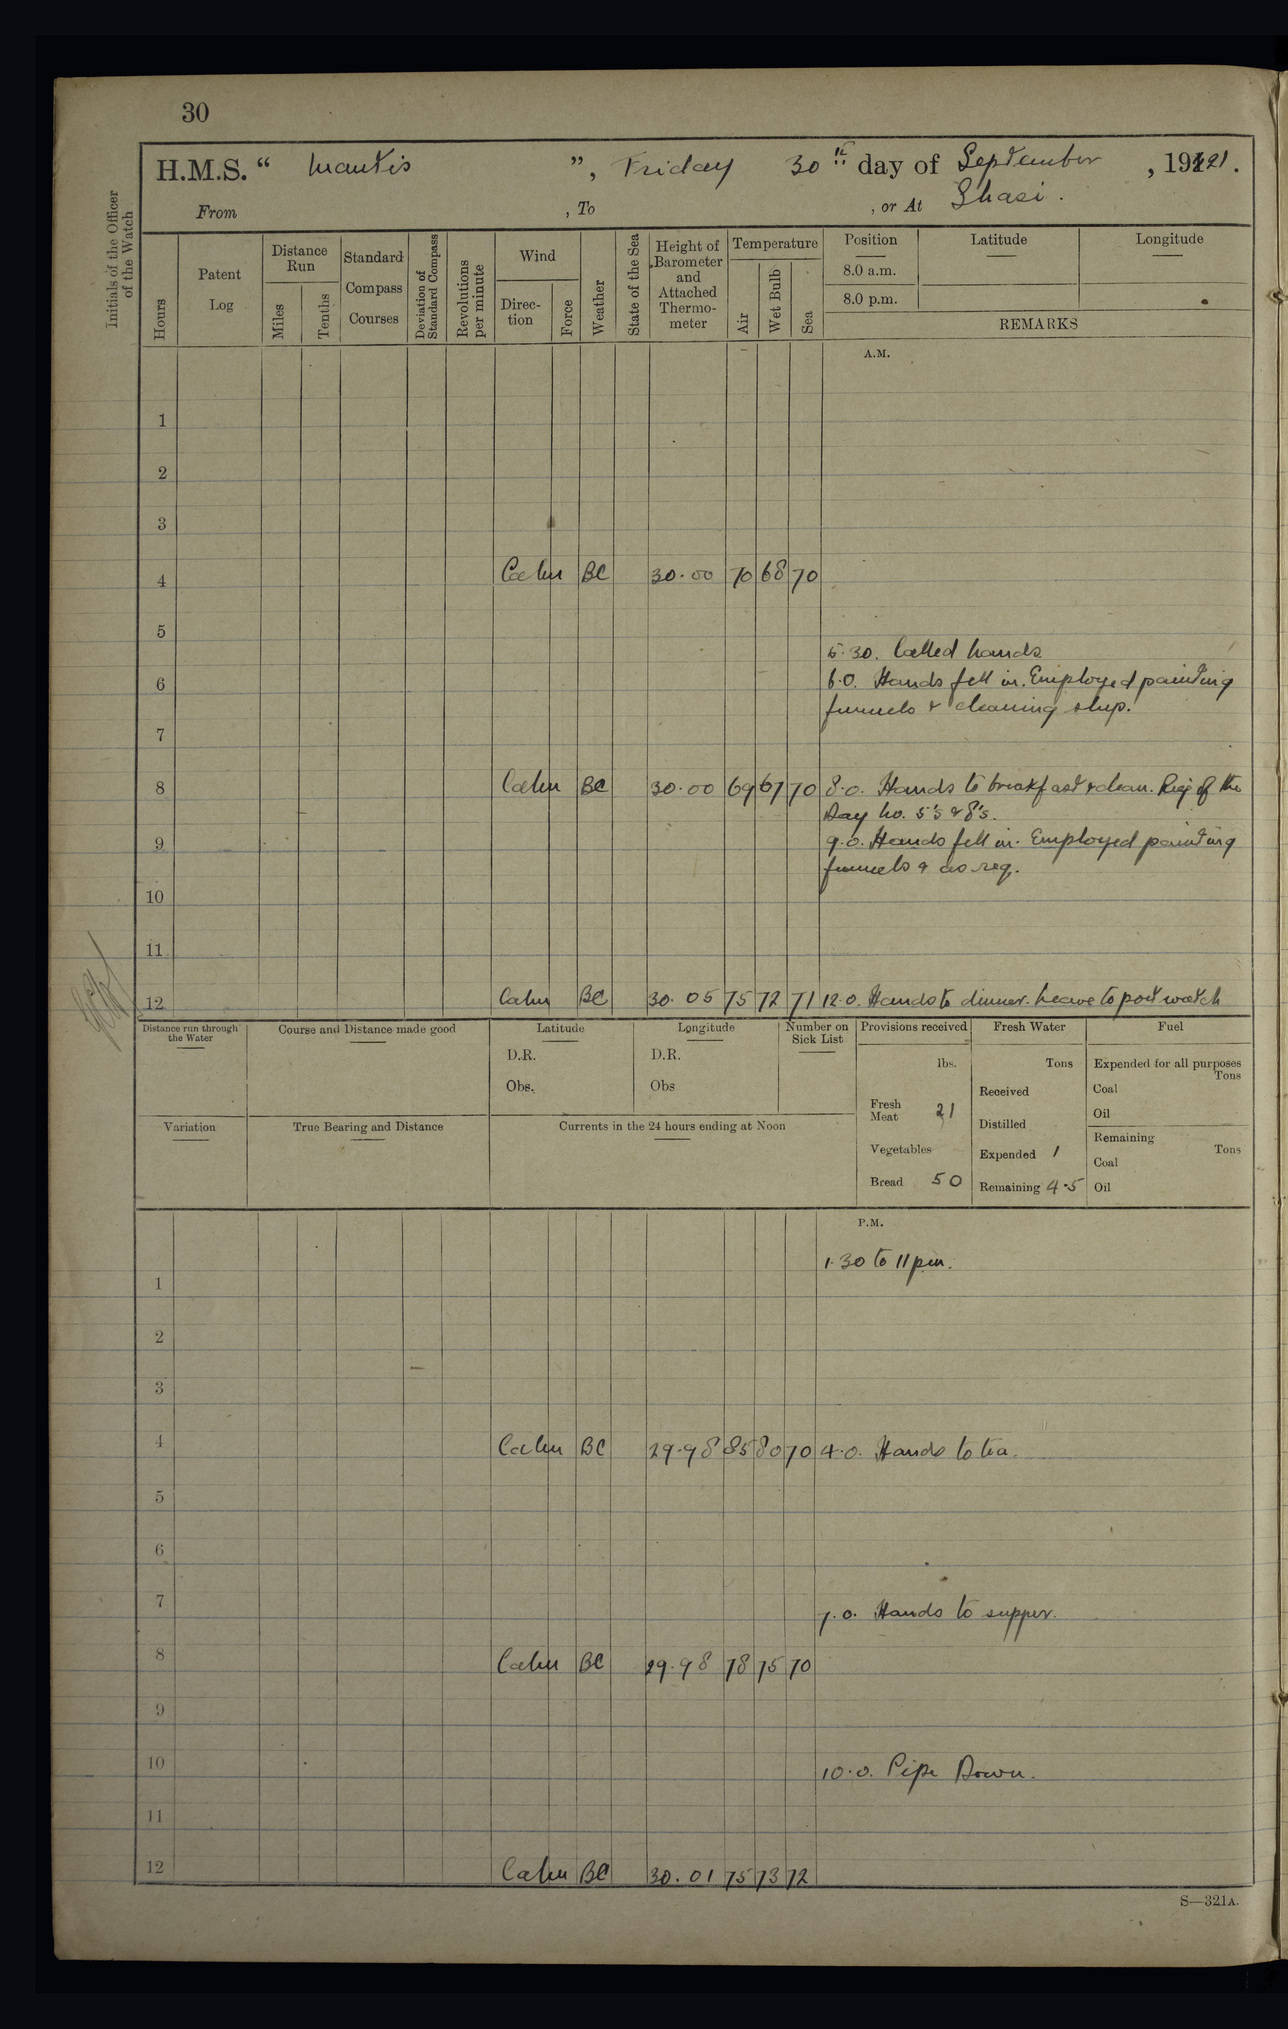 30
H.M.S. “ Mantis ”, Friday 30th day of September, 1921.
From , To , or At Shasi.
Initials of the Officer of the Watch
Hours
Patent Log
Distance Run
Miles
Tenths
Standard Compass Courses
Deviation of Standard Compass
Revolutions per minute
Wind
Direction
Force
Weather
State of the Sea
Height of Barometer and Attached Thermometer
Temperature
Air
Wet Bulb
Sea
Position
8.0 a.m.
8.0 p.m.
Latitude
Longitude
REMARKS
A.M.
1
2
3
4 Calm BC 30.00 70 68 70
5
5.30. Called hands
6 6.0. Hands fell in. Employed painting
funnels & cleaning ship.
7
8 Calm BC 30.00 69 67 70 8.0. Hands to breakfast & clean. Rig of the
Day No. 5's & 8's.
9 9.0. Hands fell in. Employed painting
funnels & as req.
10
11
12 Calm BC 30.05 75 72 71 12.0. Hands to dinner. Leave to port watch
Distance run through the Water
Course and Distance made good
Latitude
D.R.
Obs.
Longitude
D.R.
Obs
Number on Sick List
Provisions received
lbs.
Fresh Meat 21
Vegetables
Bread 50
Fresh Water
Tons
Received
Distilled
Expended 1
Remaining 4.5
Fuel
Expended for all purposes
Tons
Coal
Oil
Remaining
Tons
Coal
Oil
Variation
True Bearing and Distance
Currents in the 24 hours ending at Noon
P.M.
1.30 to 11 pm.
1
2
3
4 Calm BC 29.98 85 80 70 4.0. Hands to tea.
5
6
7 7.0. Hands to supper.
8 Calm BC 29.98 78 75 70
9
10 10.0. Pipe Down.
11
12 Calm BC 30.01 75 73 72
S—321A.